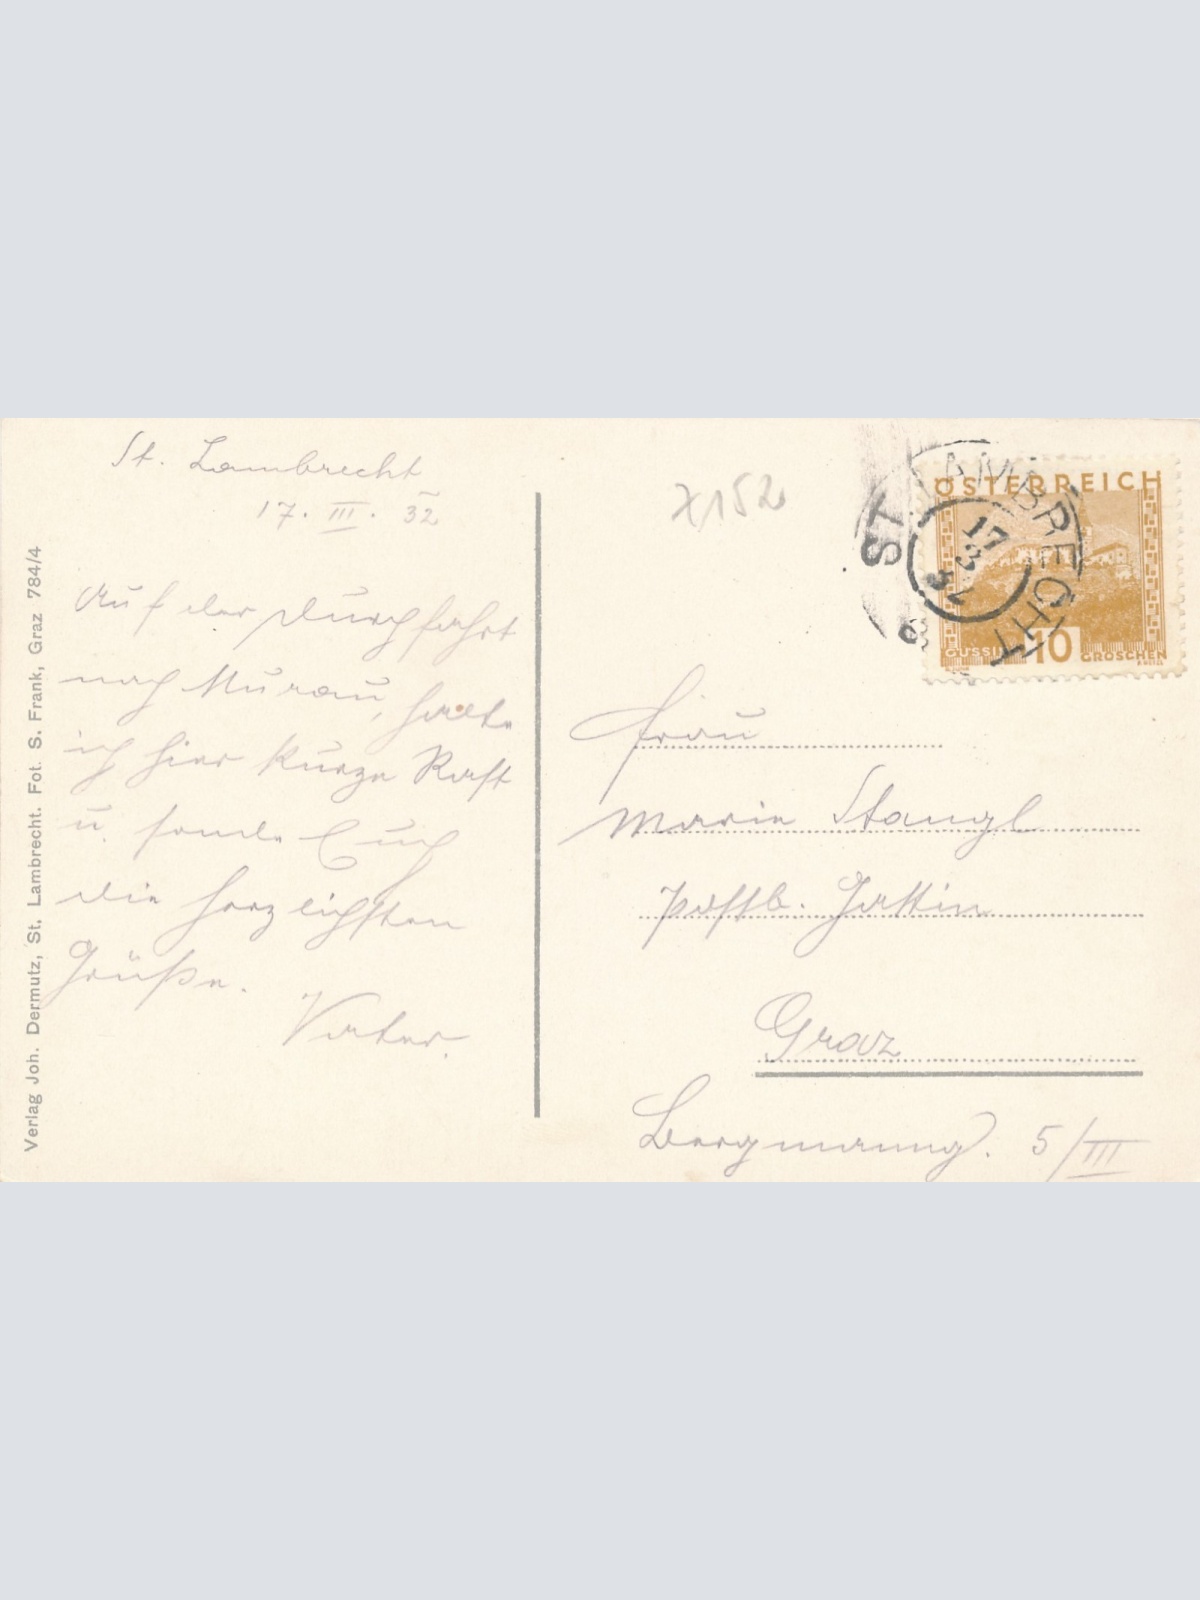 St. Lambrecht
17. III. 32
Auf der Durchfahrt
nach Murau, halte
ich hier kurze Rast
u. sende Euch
die herzlichsten
Grüße.
Vater.
Verlag Joh. Dermutz, St. Lambrecht. Fot. S. Frank, Graz 784/4
X152
ST LAMBRECHT
17
3
32
ÖSTERREICH
GÜSSING 10 GROSCHEN
Frau
Marie Stangl
Postb. Gattin
Graz
Bergmanng. 5/III